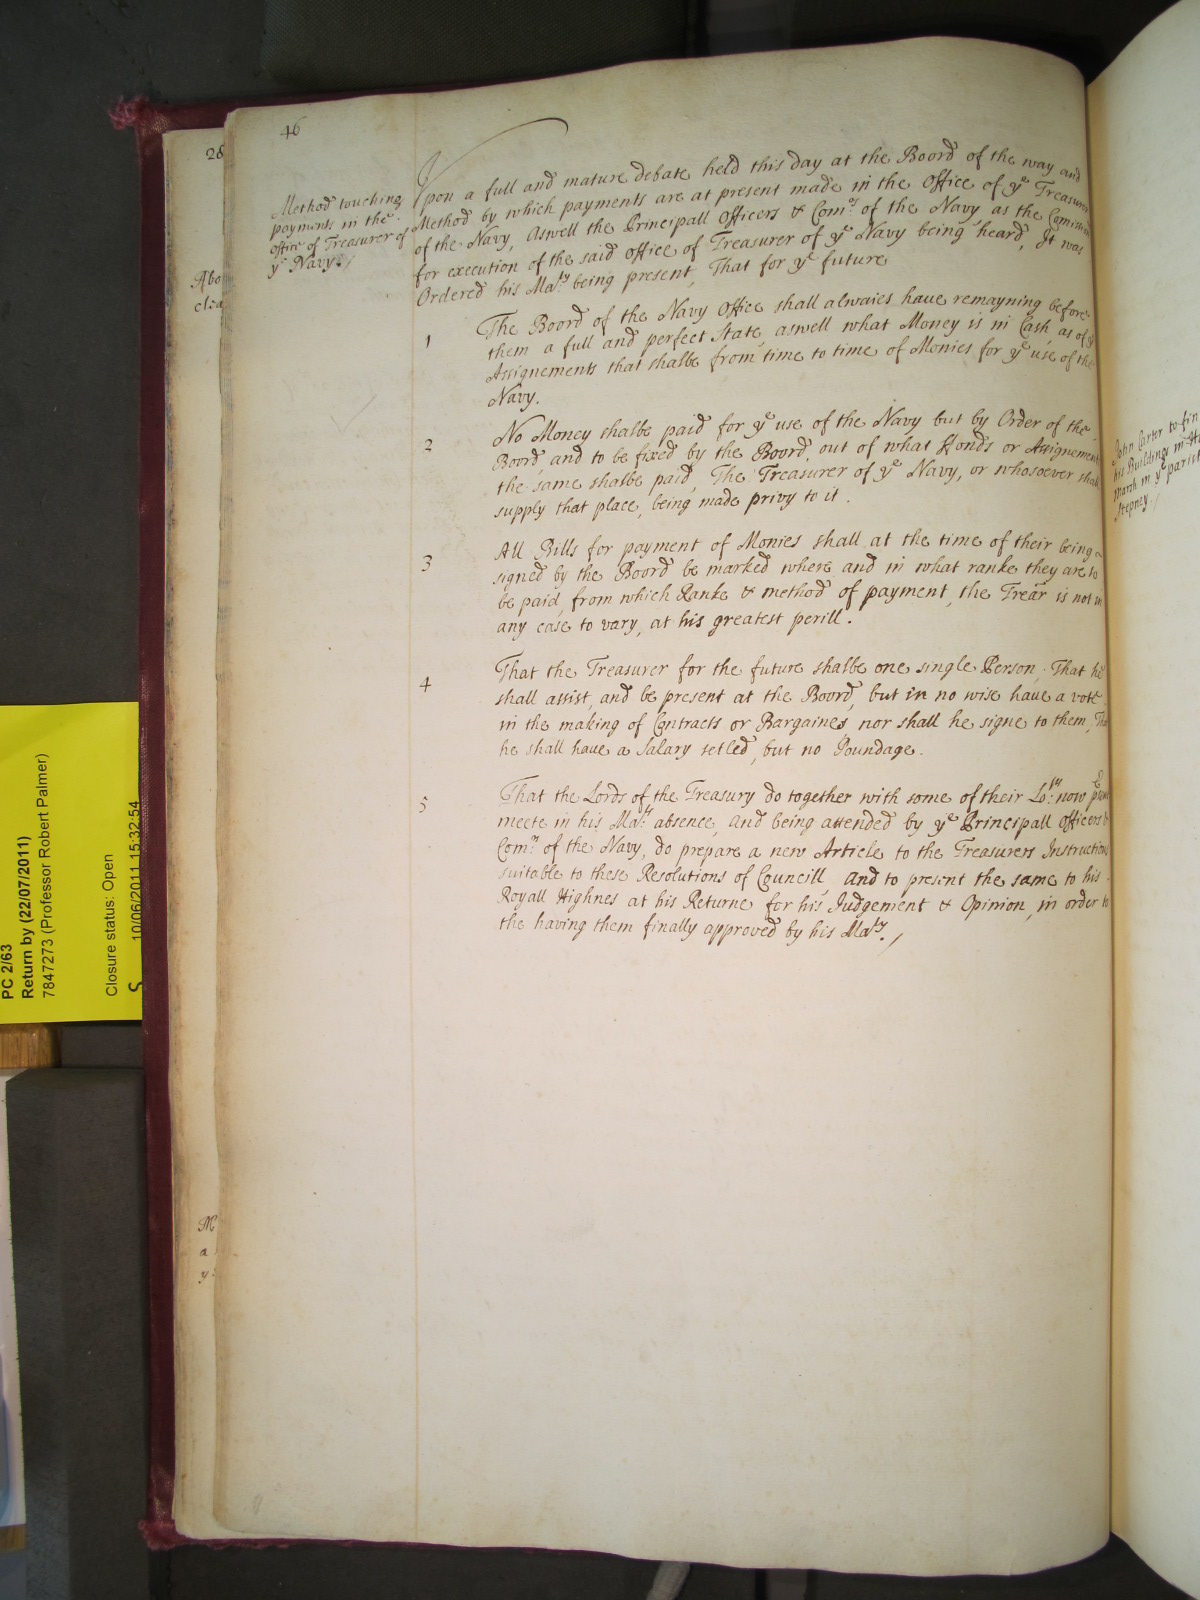 46
28
Method touching
payments in the
office of Treasurer of
yͤ Navy./
Upon a full and mature debate held this day at the Boord of the way and
Method by which payments are at present made in the Office of yͤ Treasurer
of the Navy, Aswell the Principall Officers & Comͬˢ of the Navy as the
for execution of the said office of Treasurer of yͤ Navy being heard, It was
Ordered his Maᵗʸ being present, That for yͤ future
1
The Boord of the Navy Office shall alwaies have remayning before
them a full and perfect State, aswell what Money is in Cash as of yͤ
Assignements that shalbe from time to time of Monies for yͤ use of the
Navy.
2
No Money shalbe paid for yͤ use of the Navy but by Order of the
Boord, and to be fixed by the Boord, out of what Fonds or Assignement
the same shalbe paid, The Treasurer of yͤ Navy, or whosoever shall
supply that place, being made privy to it.
3
All Bills for payment of Monies shall at the time of their being
signed by the Boord be marked where and in what ranke they are to
be paid, from which Ranke & method of payment, the Trear̃ is not in
any case to vary, at his greatest perill.
4
That the Treasurer for the future shalbe one single Person. That he
shall assist, and be present at the Boord, but in no wise have a vote
in the making of Contracts or Bargaines nor shall he signe to them, That
he shall have a Salary setled, but no Poundage.
5
That the Lords of the Treasury do together with some of their Loᵖᵖˢ now
meete in his Maᵗʸˢ absence, and being attended by yͤ Principall Officers &
Comͬˢ of the Navy, do prepare a new Article to the Treasurers Instructions
suitable to these Resolutions of Councill, and to present the same to his
Royall Highnes at his Returne for his Judgement & Opinion, in order to
the having them finally approved by his Maᵗʸ./
John Carter to fin
his Buildings in
Marsh in yͤ parish
Stepney./
PC 2/63
Return by (22/07/2011)
7847273 (Professor Robert Palmer)
Closure status: Open
10/06/2011 15:32:54
S